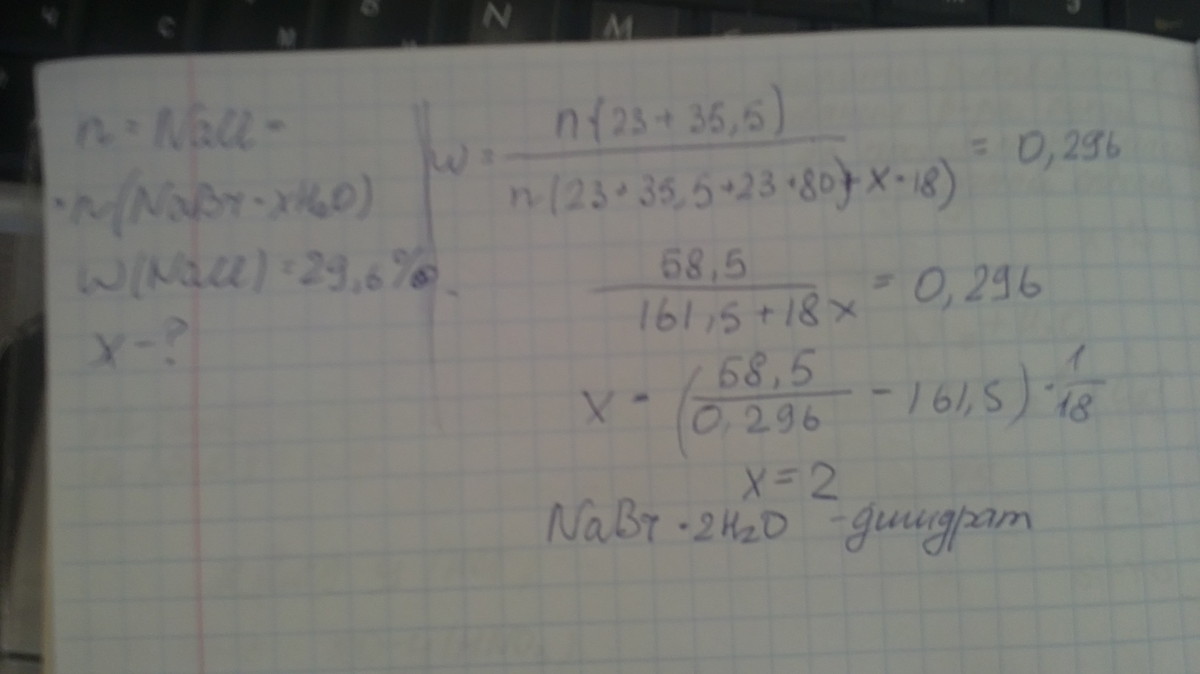 n = NaCl =
= n(NaBr · xH₂O)
W(NaCl) = 29,6%.
x - ?
W = n·(23 + 35,5) / n(23 + 35,5 + 23 + 80) + x · 18) = 0,296
58,5 / 161,5 + 18x = 0,296
x = (58,5 / 0,296 - 161,5) · 1/18
x = 2
NaBr · 2H₂O - дигидрат